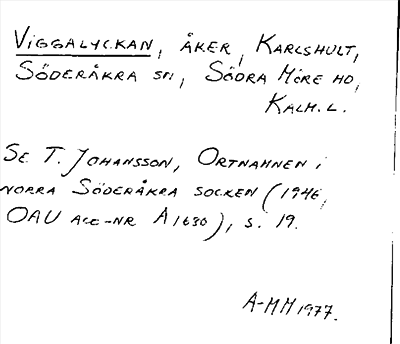 VIGGALYCKAN, ÅKER, KARLSHULT,
SÖDERÅKRA SN, SÖDRA MÖRE HD,
KALM. L.
SE T. JOHANSSON, ORTNAMNEN i
NORRA SÖDERÅKRA SOCKEN (1946,
OAU ACC-NR A1630), s. 19.
A-MM 1977.